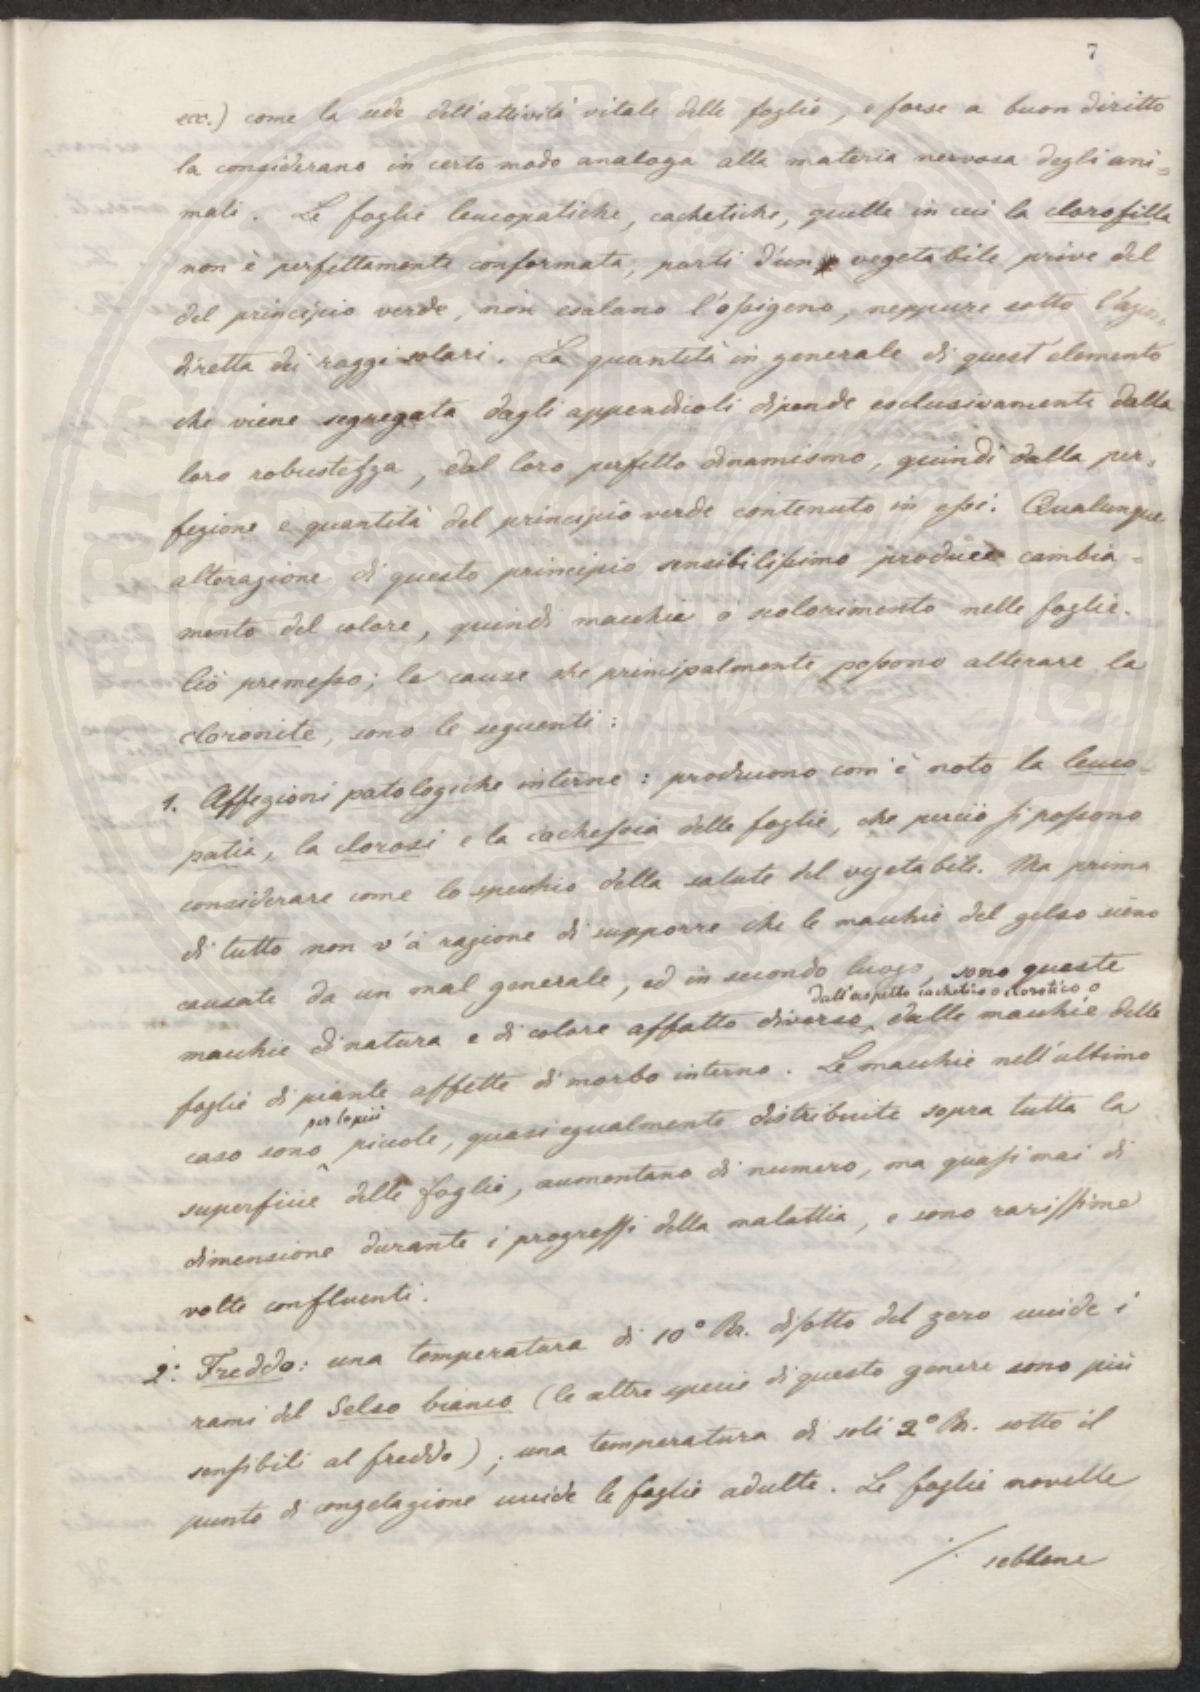 7
ecc.) come la sede dell'attività vitale delle foglie, e forse a buon diritto
la considerano in certo modo analoga alla materia nervosa degli ani-
mali. Le foglie leucopatiche, cachetiche, quelle in cui la clorofilla
non è perfettamente conformata, parti d'un vegetabile prive del
del principio verde, non esalano l'ossigeno, neppure sotto l'azione
diretta dei raggi solari. La quantità in generale di quest'elemento
che viene segregata dagli appendicoli dipende esclusivamente dalla
loro robustezza, dal loro perfetto dinamismo, quindi dalla per-
fezione e quantità del principio verde contenuto in essi. Qualunque
alterazione di questo principio sensibilissimo produce cambia-
mento del colore, quindi macchie o scolorimento nelle foglie.
Ciò premesso; le cause che principalmente possono alterare la
cloronite, sono le seguenti:
1. Affezioni patologiche interne: producono com'è noto la leuco-
patia, la clorosi e la cachessia delle foglie, che perciò si possono
considerare come lo specchio della salute del vegetabile. Ma prima
di tutto non v'à ragione di supporre che le macchie del gelso sieno
causate da un mal generale, ed in secondo luogo, sono queste
dall'aspetto cachetico o clorotico o
macchie di natura e di colore affatto diverso, dalle macchie delle
foglie di piante affette di morbo interno. Le macchie nell'ultimo
per lo più
caso sono piccole, quasi egualmente distribuite sopra tutta la
superficie delle foglie, aumentano di numero, ma quasi mai di
dimensione durante i progressi della malattia, e sono rarissime
volte confluenti.
2: Freddo: una temperatura di 10° Rr. disotto del zero uccide i
rami del Gelso bianco (le altre specie di questo genere sono più
sensibili al freddo); una temperatura di soli 2° Rr. sotto il
punto di congelazione uccide le foglie adulte. Le foglie novelle
/. sebbene